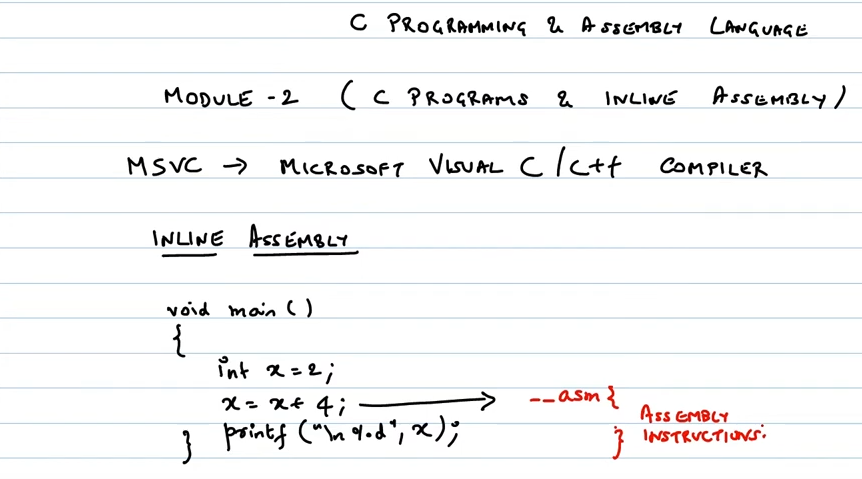 C PROGRAMMING & ASSEMBLY LANGUAGE
MODULE-2 ( C PROGRAMS & INLINE ASSEMBLY)
MSVC → MICROSOFT VISUAL C/C++ COMPILER
INLINE ASSEMBLY
void main()
{
int x=2;
x= x+ 4; → __asm{
ASSEMBLY
} printf("\n%d", x); } INSTRUCTIONS.